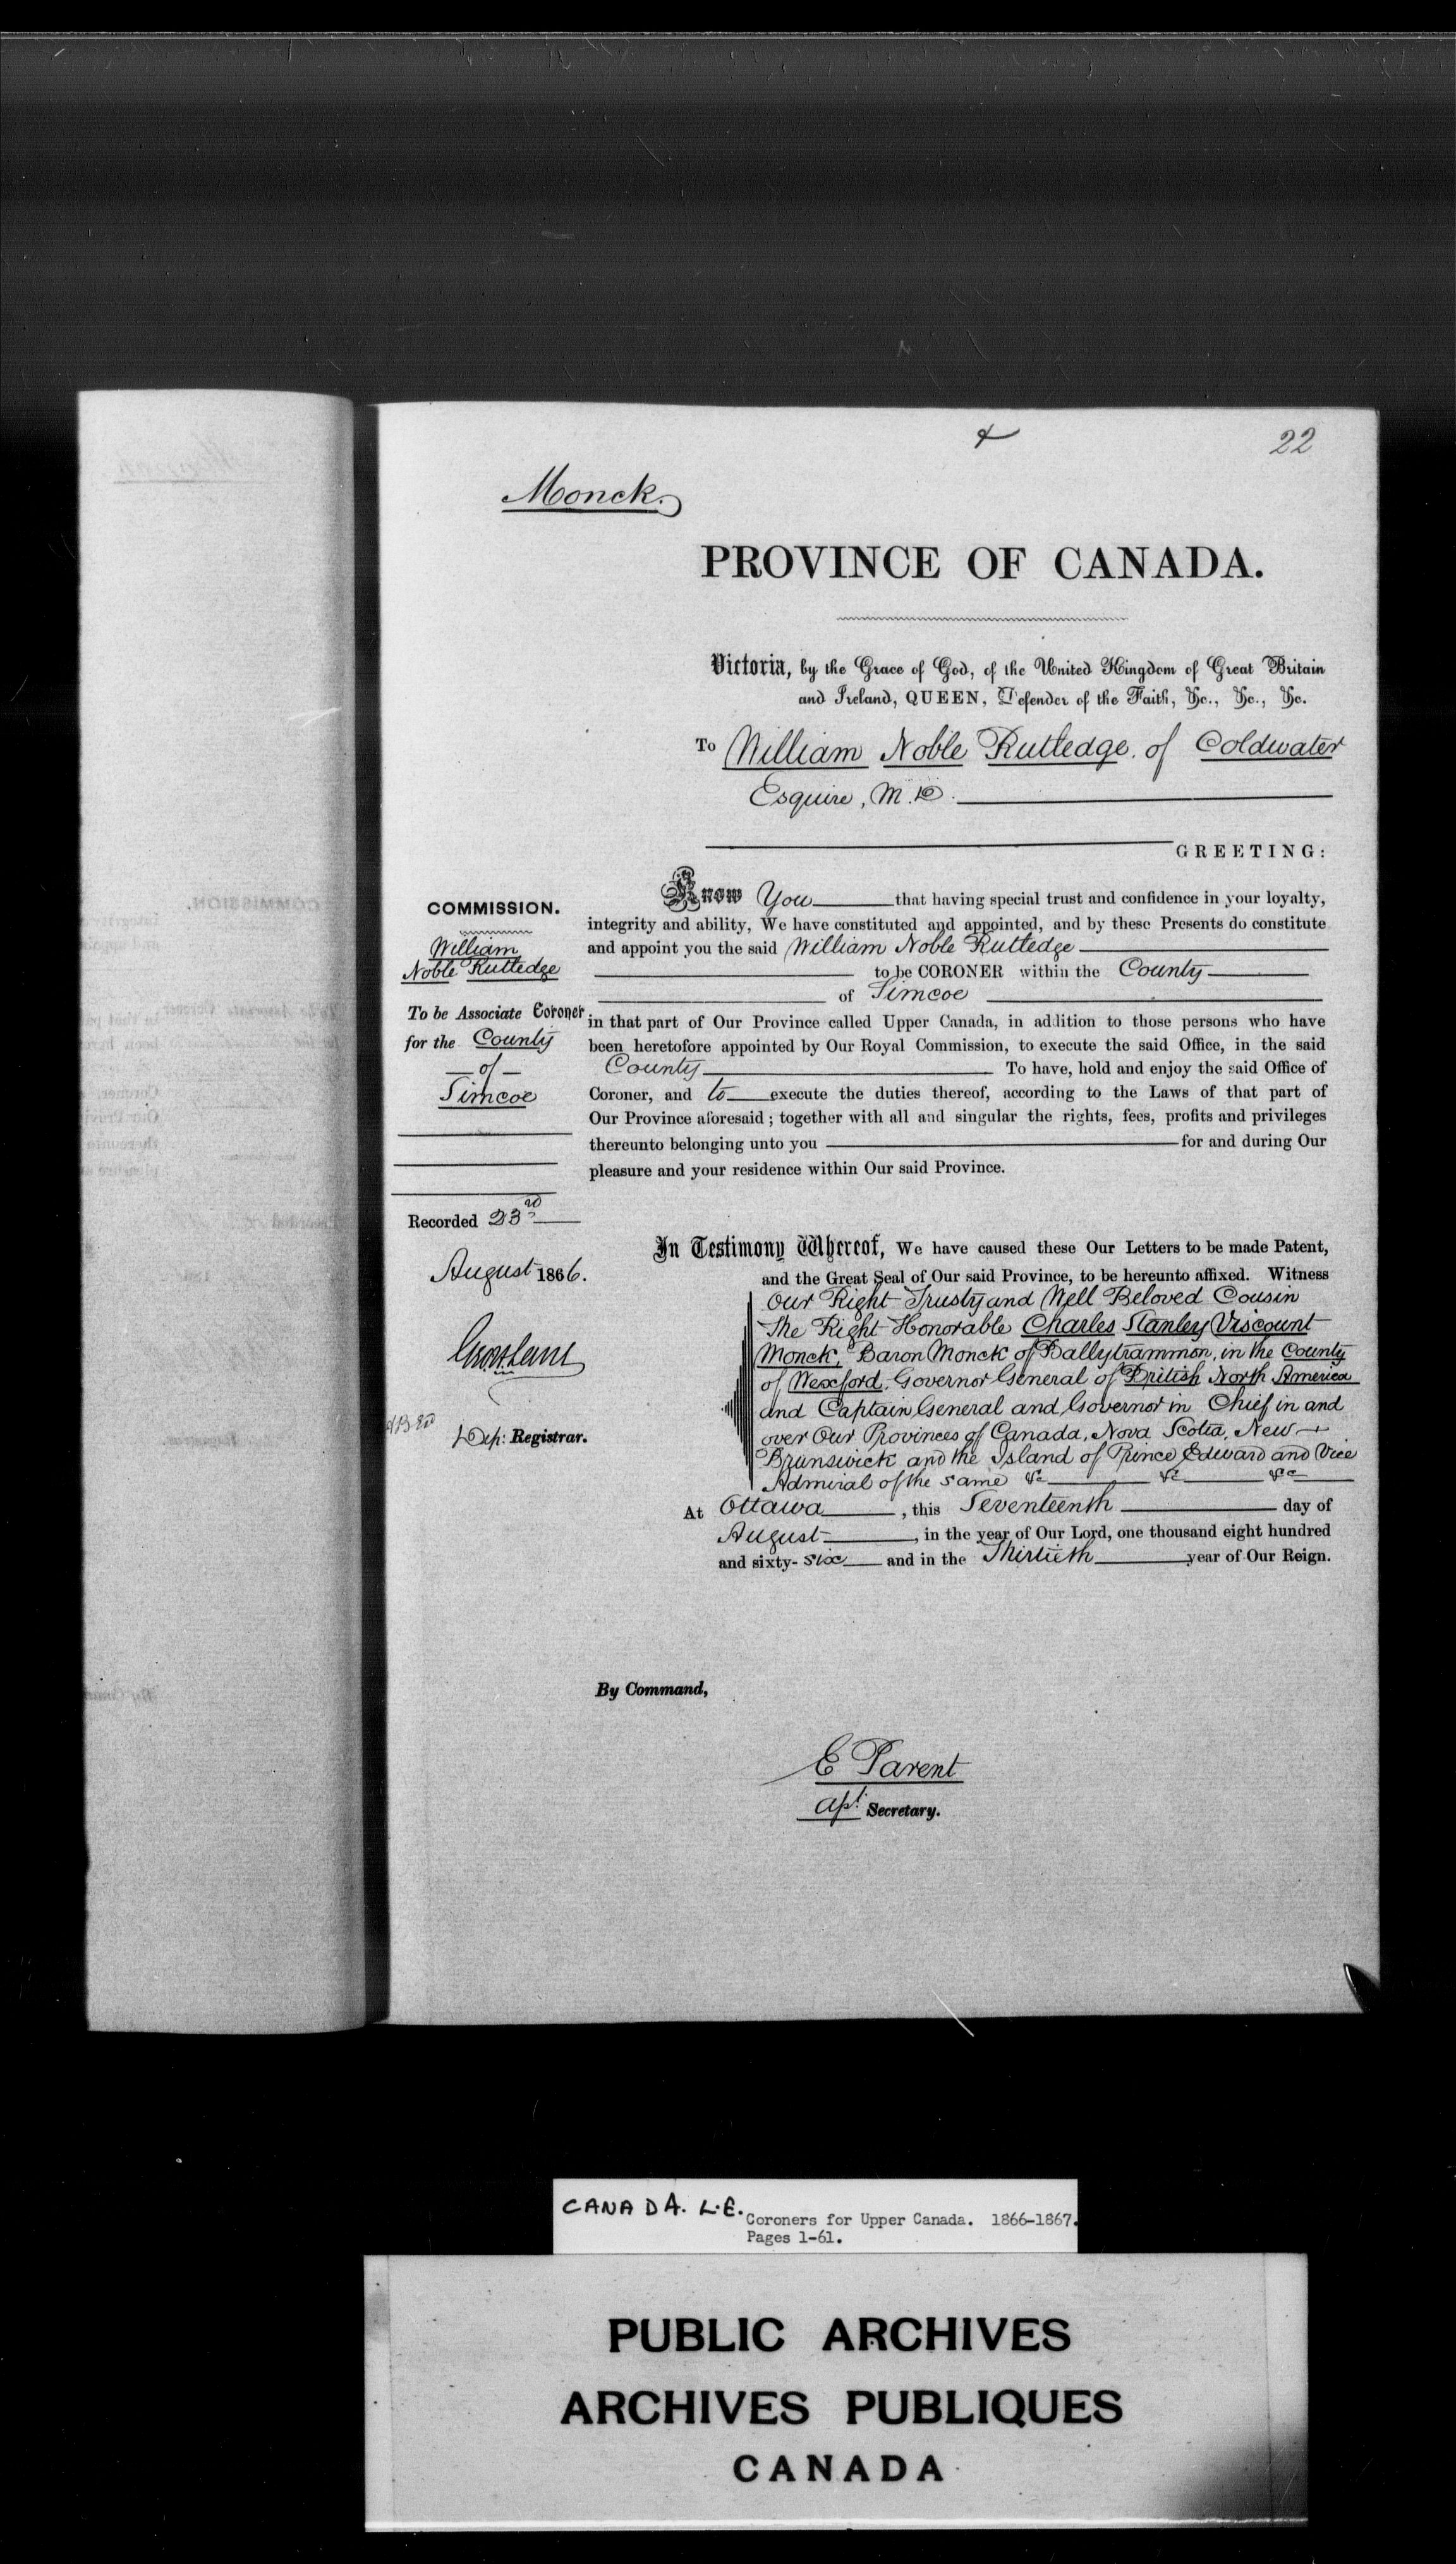 22
Monck.
PROVINCE OF CANADA.
Victoria, by the Grace of God, of the United Kingdom of Great Britain
and Ireland, QUEEN, Defender of the Faith, &c., &c., &c.
To William Noble Rutledge. of Coldwater
Esquire, M.D.
GREETING:
Know You that having special trust and confidence in your loyalty,
integrity and ability, We have constituted and appointed, and by these Presents do constitute
and appoint you the said William Noble Rutledge
to be CORONER within the County
of Simcoe
in that part of Our Province called Upper Canada, in addition to those persons who have
been heretofore appointed by Our Royal Commission, to execute the said Office, in the said
County To have, hold and enjoy the said Office of
Coroner, and to execute the duties thereof, according to the Laws of that part of
Our Province aforesaid; together with all and singular the rights, fees, profits and privileges
thereunto belonging unto you for and during Our
pleasure and your residence within Our said Province.
COMMISSION.
William
Noble Rutledge
To be Associate Coroner
for the County
of
Simcoe
Recorded 23rd
August 1866.
Dep: Registrar.
In Testimony Whereof, We have caused these Our Letters to be made Patent,
and the Great Seal of Our said Province, to be hereunto affixed. Witness
Our Right Trusty and Well Beloved Cousin
The Right Honorable Charles Stanley Viscount
Monck, Baron Monck of Ballytrammon, in the County
of Wexford, Governor General of British North America
and Captain General and Governor in Chief in and
over Our Provinces of Canada, Nova Scotia, New
Brunswick and the Island of Prince Edward and Vice
Admiral of the same &c &c &c
At Ottawa, this Seventeenth day of
August, in the year of Our Lord, one thousand eight hundred
and sixty-six and in the Thirtieth year of Our Reign.
By Command,
E Parent
Ast. Secretary.
CANADA. L.E. Coroners for Upper Canada. 1866-1867.
Pages 1-61.
PUBLIC ARCHIVES
ARCHIVES PUBLIQUES
CANADA